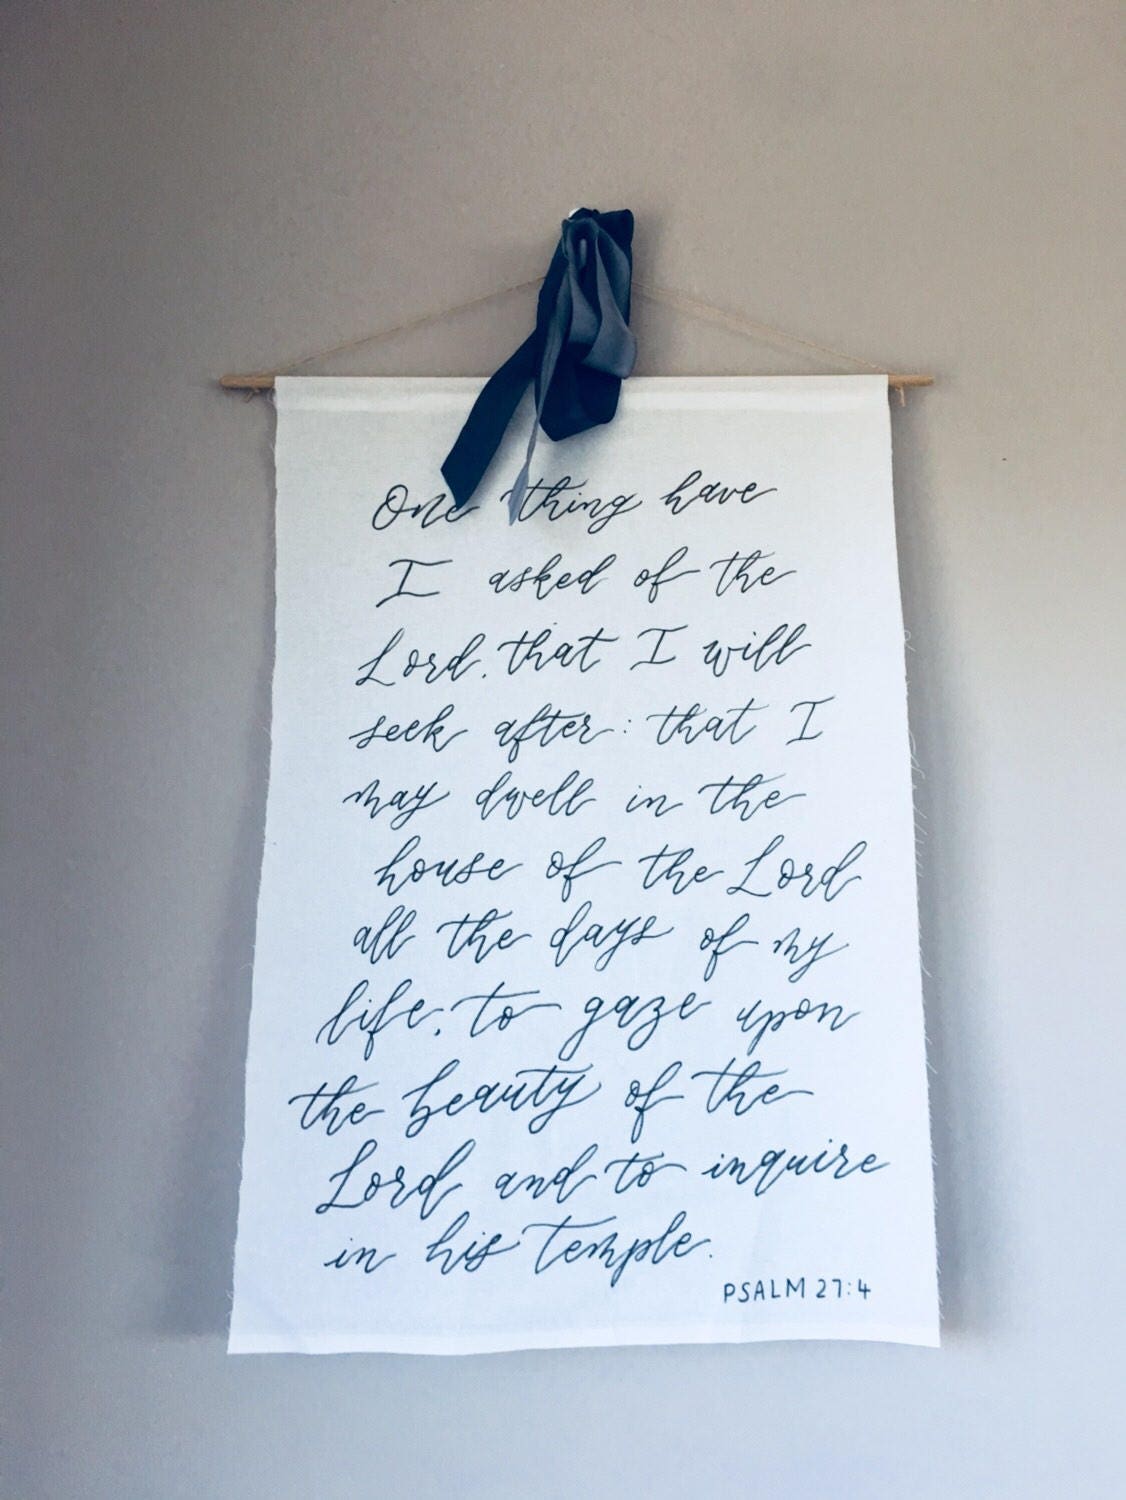 One thing have
I asked of the
Lord, that I will
seek after: that I
may dwell in the
house of the Lord
all the days of my
life, to gaze upon
the beauty of the
Lord and to inquire
in his temple.
PSALM 27:4